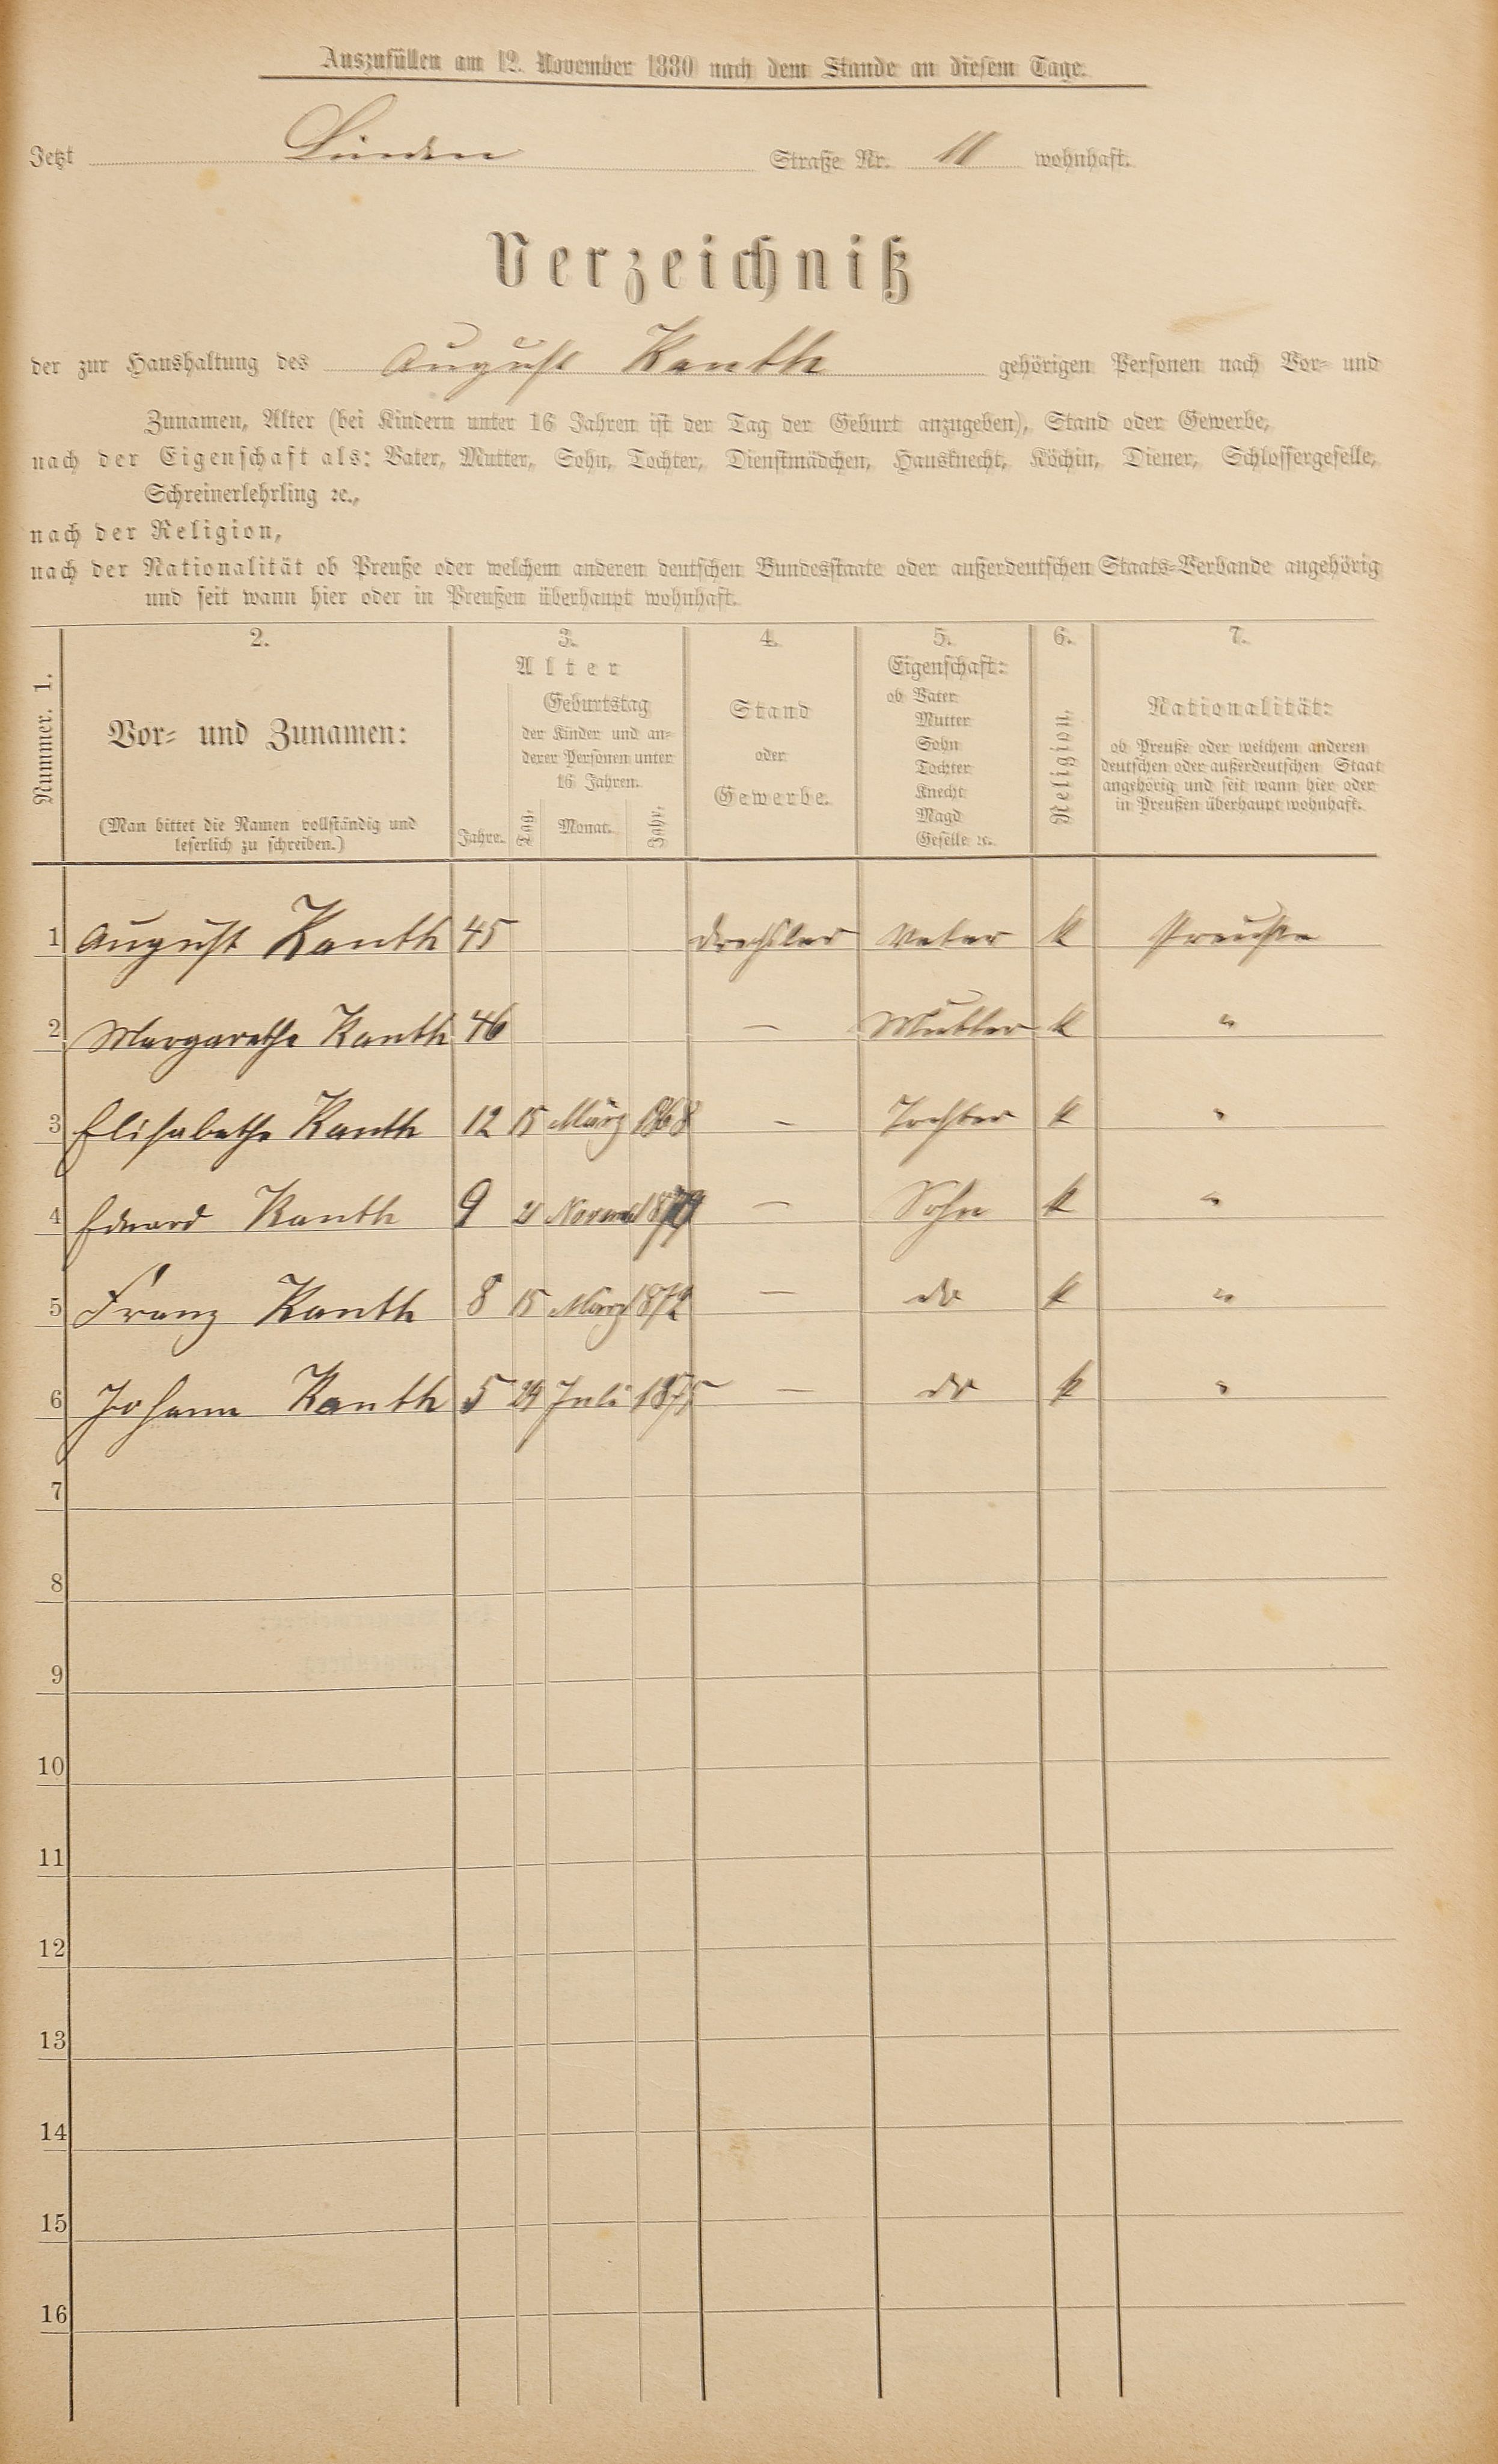 Auszufüllen am 12. November 1880 nach dem Stande an diesem Tage.
Jetzt Linden Straße Nr. 11 wohnhaft.
Verzeichniß
der zur Haushaltung des August Kanth gehörigen Personen nach Vor- und
Zunamen, Alter (bei Kindern unter 16 Jahren ist der Tag der Geburt anzugeben), Stand oder Gewerbe,
nach der Eigenschaft als: Vater, Mutter, Sohn, Tochter, Dienstmädchen, Hausknecht, Köchin, Diener, Schlossergeselle,
Schreinerlehrling ꝛc.,
nach der Religion,
nach der Nationalität ob Preuße oder welchem anderen deutschen Bundesstaate oder außerdeutschen Staats-Verbande angehörig
und seit wann hier oder in Preußen überhaupt wohnhaft.
Nummer. 1.
2.
Vor- und Zunamen:
(Man bittet die Namen vollständig und
leserlich zu schreiben.)
3.
Alter
Jahre.
Geburtstag
der Kinder und an-
derer Personen unter
16 Jahren.
Tag. Monat. Jahr.
4.
Stand
oder
Gewerbe.
5.
Eigenschaft:
ob Vater
Mutter
Sohn
Tochter
Knecht
Magd
Geselle ꝛc.
6.
Religion.
7.
Nationalität:
ob Preuße oder welchem anderen
deutschen oder außerdeutschen Staat
angehörig und seit wann hier oder
in Preußen überhaupt wohnhaft.
1 August Kanth 45 Drechsler Vater k Preuße
2 Margarethe Kanth 46 — Mutter k "
3 Elisabethe Kanth 12 15 März 1868 — Tochter k "
4 Eduard Kanth 9 21 — Sohn k "
5 Franz Kanth 8 15 März 1872 — do k "
6 Johann Kanth 5 24 Juli 1875 — do k "
7
8
9
10
11
12
13
14
15
16